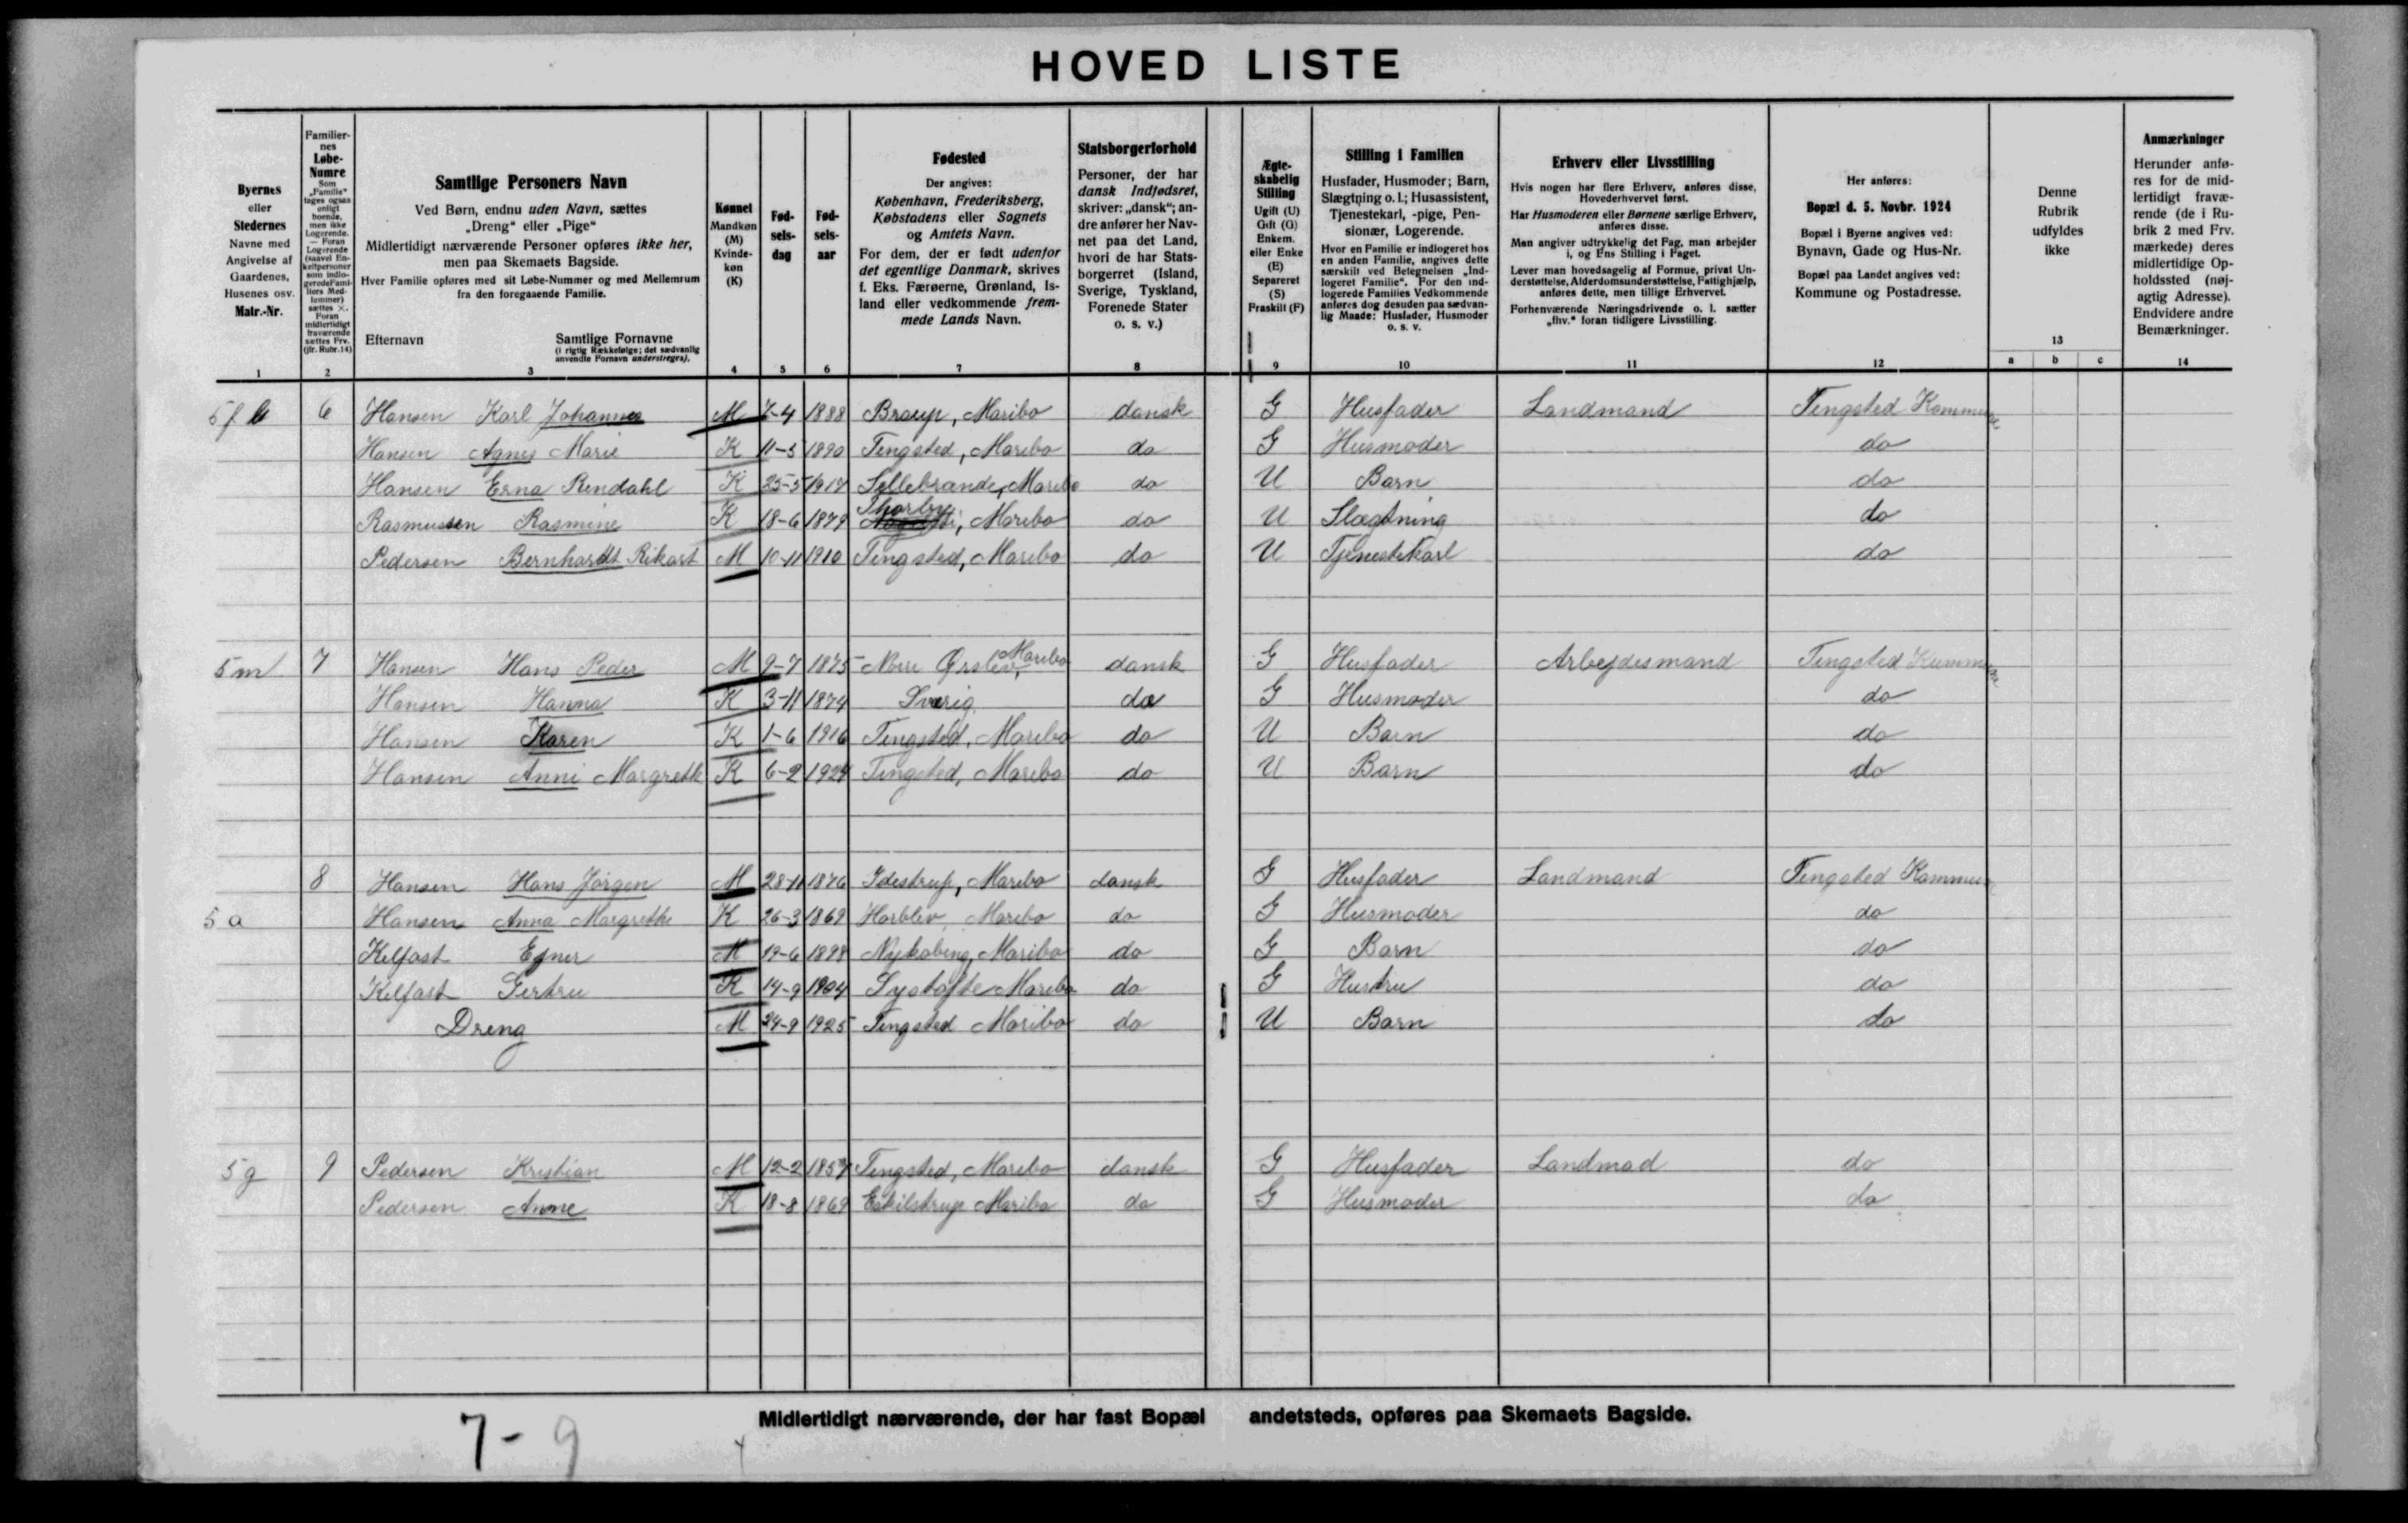 HOVED LISTE
Byernes
eller
Stedernes
Navne med
Angivelse af
Gaardenes,
Husenes osv.
Matr.-Nr.
1
Familier-
nes
Løbe-
Numre
Som
„Familie“
tages ogsaa
enligt
boende,
men ikke
Logerende.
— Foran
Logerende
(saavel En-
keltpersoner
som indlo-
gerede Fami-
liers Med-
lemmer)
sættes ×.
Foran
midlertidigt
fraværende
sættes Frv.
(jfr. Rubr. 14)
2
Samtlige Personers Navn
Ved Børn, endnu uden Navn, sættes
„Dreng“ eller „Pige“
Midlertidigt nærværende Personer opføres ikke her,
men paa Skemaets Bagside.
Hver Familie opføres med sit Løbe-Nummer og med Mellemrum
fra den foregaaende Familie.
Efternavn
Samtlige Fornavne
(i rigtig Rækkefølge; det sædvanlig
anvendte Fornavn understreges).
3
Kønnet
Mandkøn
(M)
Kvinde-
køn
(K)
4
Fød-
sels-
dag
5
Fød-
sels-
aar
6
Fødested
Der angives:
København, Frederiksberg,
Købstadens eller Sognets
og Amtets Navn.
For dem, der er født udenfor
det egentlige Danmark, skrives
f. Eks. Færøerne, Grønland, Is-
land eller vedkommende frem-
mede Lands Navn.
7
Statsborgerforhold
Personer, der har
dansk Indfødsret,
skriver: „dansk“; an-
dre anfører her Nav-
net paa det Land,
hvori de har Stats-
borgerret (Island,
Sverige, Tyskland,
Forenede Stater
o. s. v.)
8
Ægte-
skabelig
Stilling
Ugift (U)
Gift (G)
Enkem.
eller Enke
(E)
Separeret
(S)
Fraskilt (F)
9
Stilling i Familien
Husfader, Husmoder; Barn,
Slægtning o. l.; Husassistent,
Tjenestekarl, -pige, Pen-
sionær, Logerende.
Hvor en Familie er indlogeret hos
en anden Familie, angives dette
særskilt ved Betegnelsen „Ind-
logeret Familie“. For den ind-
logerede Families Vedkommende
anføres dog desuden paa sædvan-
lig Maade: Husfader, Husmoder
o. s. v.
10
Erhverv eller Livsstilling
Hvis nogen har flere Erhverv, anføres disse,
Hovederhvervet først.
Har Husmoderen eller Børnene særlige Erhverv,
anføres disse.
Man angiver udtrykkelig det Fag, man arbejder
i, og Ens Stilling i Faget.
Lever man hovedsagelig af Formue, privat Un-
derstøttelse, Alderdomsunderstøttelse, Fattighjælp,
anføres dette, men tillige Erhvervet.
Forhenværende Næringsdrivende o. l. sætter
„fhv.“ foran tidligere Livsstilling.
11
Her anføres:
Bopæl d. 5. Novbr. 1924
Bopæl i Byerne angives ved:
Bynavn, Gade og Hus-Nr.
Bopæl paa Landet angives ved:
Kommune og Postadresse.
12
Denne
Rubrik
udfyldes
ikke
13
a b c
Anmærkninger
Herunder anfø-
res for de mid-
lertidigt fravæ-
rende (de i Ru-
brik 2 med Frv.
mærkede) deres
midlertidige Op-
holdssted (nøj-
agtig Adresse).
Endvidere andre
Bemærkninger.
14
6 Hansen Karl Johannes M 7-4 1888 Braup, Maribo dansk G Husfader Landmand Tingsted Kommune
Hansen Agnes Marie K 11-5 1890 Tingsted, Maribo do G Husmoder do
Hansen Erna Rendahl K 25-5 Maribo do U Barn do
Rasmussen Rasmine K 18-6 1879 Thorby, Maribo do U Slægtning do
Pedersen Bernhardt Rikart M 10-11 1910 Tingsted, Maribo do U Tjenestekarl do
5m 7 Hansen Hans Peder M 9-7 1875 Nørre Ørslev, Maribo dansk G Husfader Arbejdesmand Tingsted Kummune
Hansen Hanna K 3-11 1874 Sverig do G Husmoder do
Hansen Karen K 1-6 1916 Tingsted, Maribo do U Barn do
Hansen Anni Margrethe K 6-2 1924 Tingsted, Maribo do U Barn do
8 Hansen Hans Jörgen M 28-11 1876 Idestrup, Maribo dansk G Husfader Landmand Tingsted Kommune
5a Hansen Anna Margrethe K 26-3 1869 Horblev, Maribo do G Husmoder do
Kelfast Ejner M 19-6 1898 Nykøbing, Maribo do G Barn do
Kelfast Gertru K 14-9 1904 Systofte Maribo do G Hustru do
Dreng M 24-9 1925 Tingsted Maribo do U Barn do
5g 9 Pedersen Kristian M 12-2 Tingsted, Maribo dansk G Husfader Landmad do
Pedersen Anne K 18-8 1869 Eskilstrup Maribo do G Husmoder do
Midlertidigt nærværende, der har fast Bopæl andetsteds, opføres paa Skemaets Bagside.
7-9